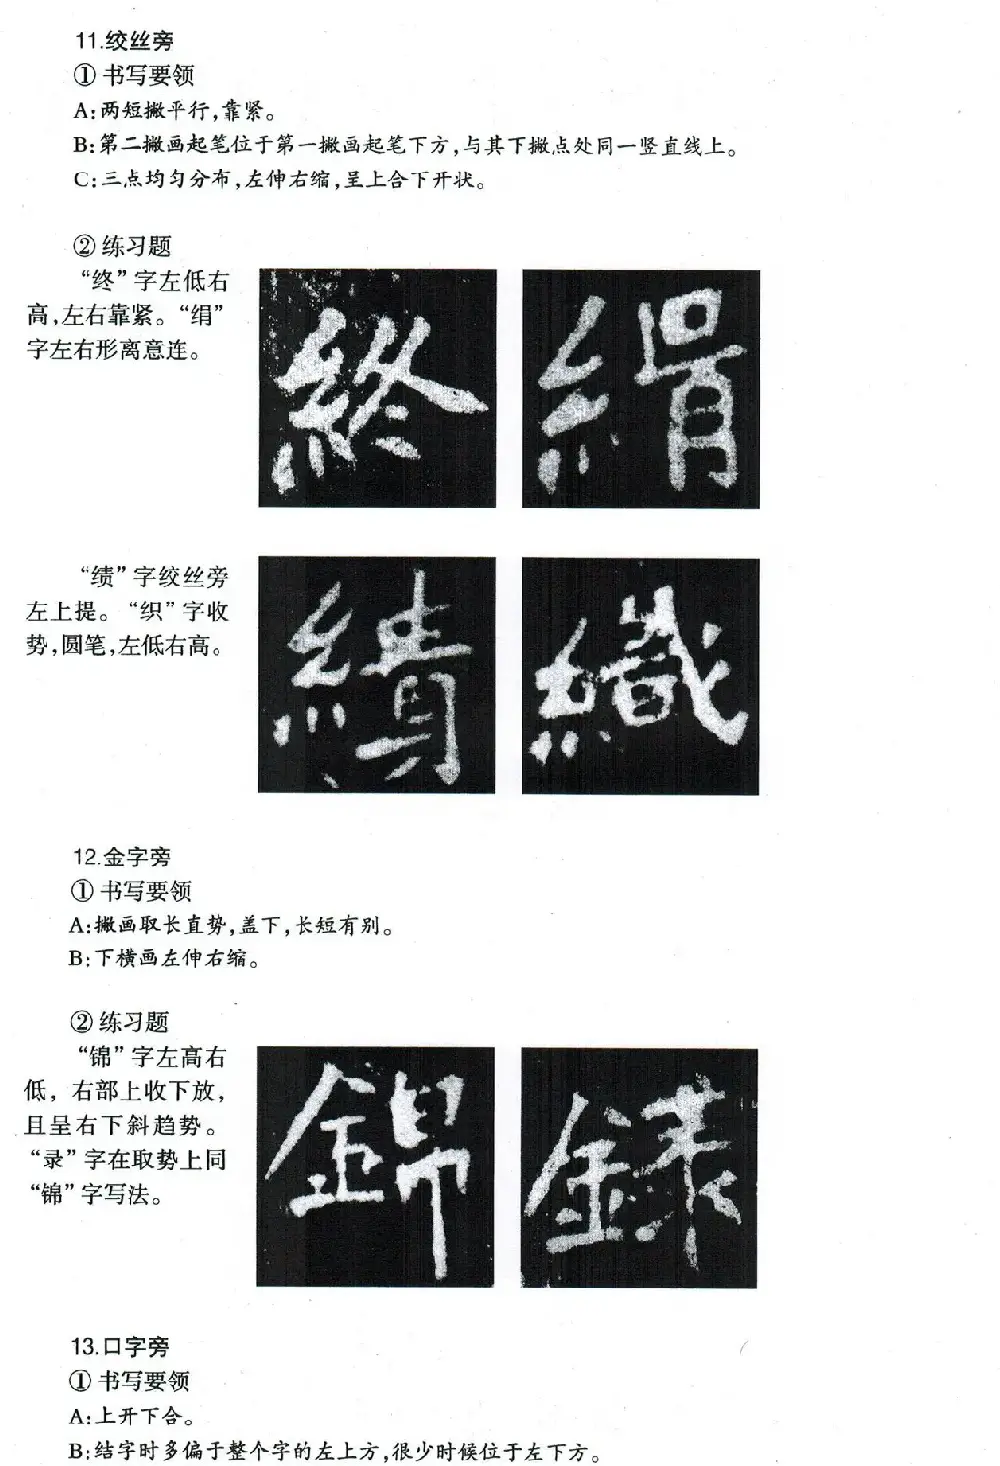 11.绞丝旁
① 书写要领
A:两短撇平行,靠紧。
B:第二撇画起笔位于第一撇画起笔下方,与其下撇点处同一竖直线上。
C:三点均匀分布,左伸右缩,呈上合下开状。
② 练习题
“终”字左低右
高,左右靠紧。“绢”
字左右形离意连。
終 絹
“绩”字绞丝旁
左上提。“织”字收
势,圆笔,左低右高。
績 織
12.金字旁
① 书写要领
A:撇画取长直势,盖下,长短有别。
B:下横画左伸右缩。
② 练习题
“锦”字左高右
低,右部上收下放,
且呈右下斜趋势。
“录”字在取势上同
“锦”字写法。
錦 録
13.口字旁
① 书写要领
A:上开下合。
B:结字时多偏于整个字的左上方,很少时候位于左下方。